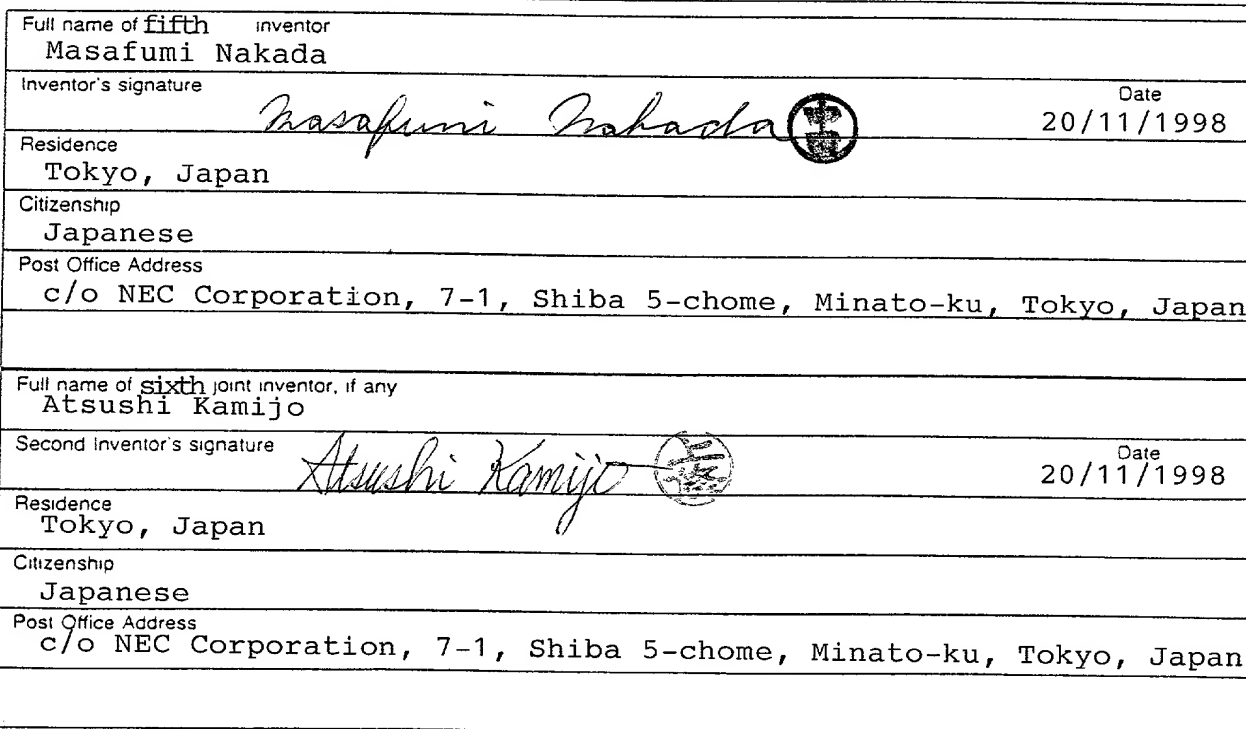 Full name of fifth inventor
Masafumi Nakada
Inventor's signature
Date
Masafumi Nakada 中田
20/11/1998
Residence
Tokyo, Japan
Citizenship
Japanese
Post Office Address
c/o NEC Corporation, 7-1, Shiba 5-chome, Minato-ku, Tokyo, Japan
Full name of sixth joint inventor, if any
Atsushi Kamijo
Second Inventor's signature
Date
Atsushi Kamijo 上條
20/11/1998
Residence
Tokyo, Japan
Citizenship
Japanese
Post Office Address
c/o NEC Corporation, 7-1, Shiba 5-chome, Minato-ku, Tokyo, Japan